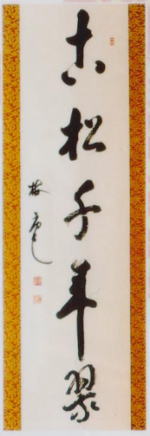 古松千年翠